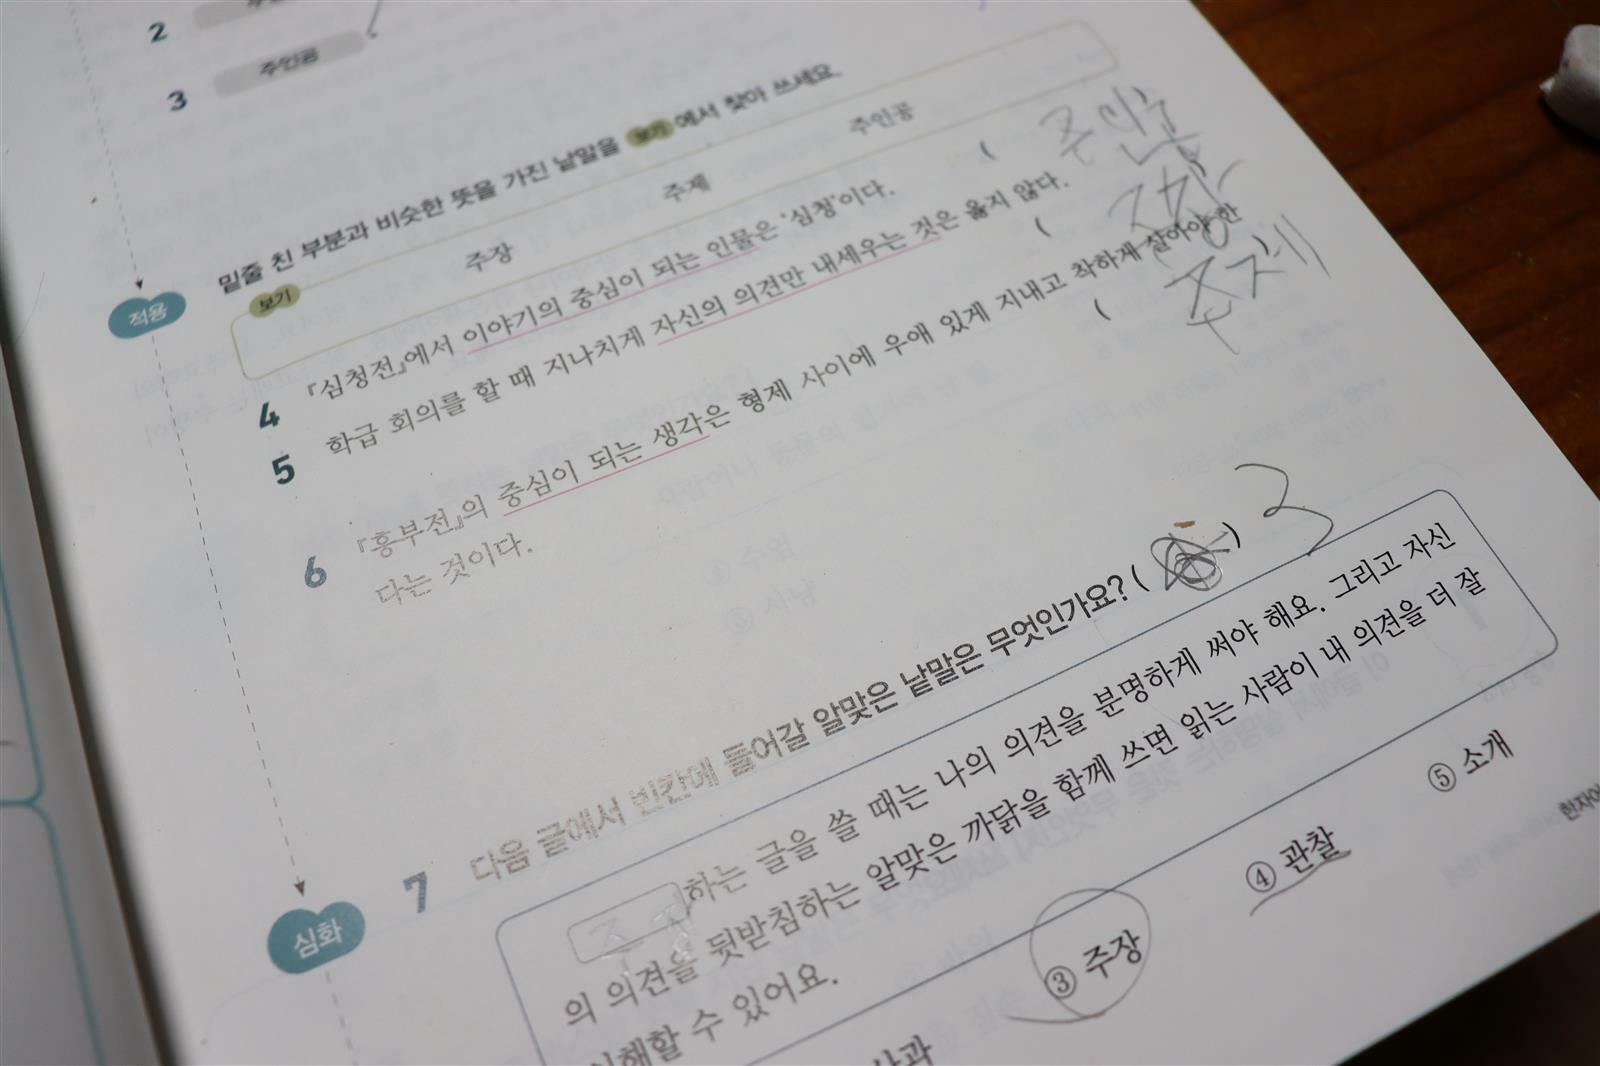 2
3 주인공
밑줄 친 부분과 비슷한 뜻을 가진 낱말을 보기 에서 찾아 쓰세요.
적용
보기
주장 주제 주인공
4 『심청전』에서 이야기의 중심이 되는 인물은 '심청'이다. ( 주인공 )
5 학급 회의를 할 때 지나치게 자신의 의견만 내세우는 것은 옳지 않다. ( 주장 )
6 『흥부전』의 중심이 되는 생각은 형제 사이에 우애 있게 지내고 착하게 살아야 한
다는 것이다. ( 주제
심화
7 다음 글에서 빈칸에 들어갈 알맞은 낱말은 무엇인가요? ( ) 3
주장 하는 글을 쓸 때는 나의 의견을 분명하게 써야 해요. 그리고 자신
의 의견을 뒷받침하는 알맞은 까닭을 함께 쓰면 읽는 사람이 내 의견을 더 잘
해할 수 있어요.
사과 ③ 주장 ④ 관찰 ⑤ 소개
한자어